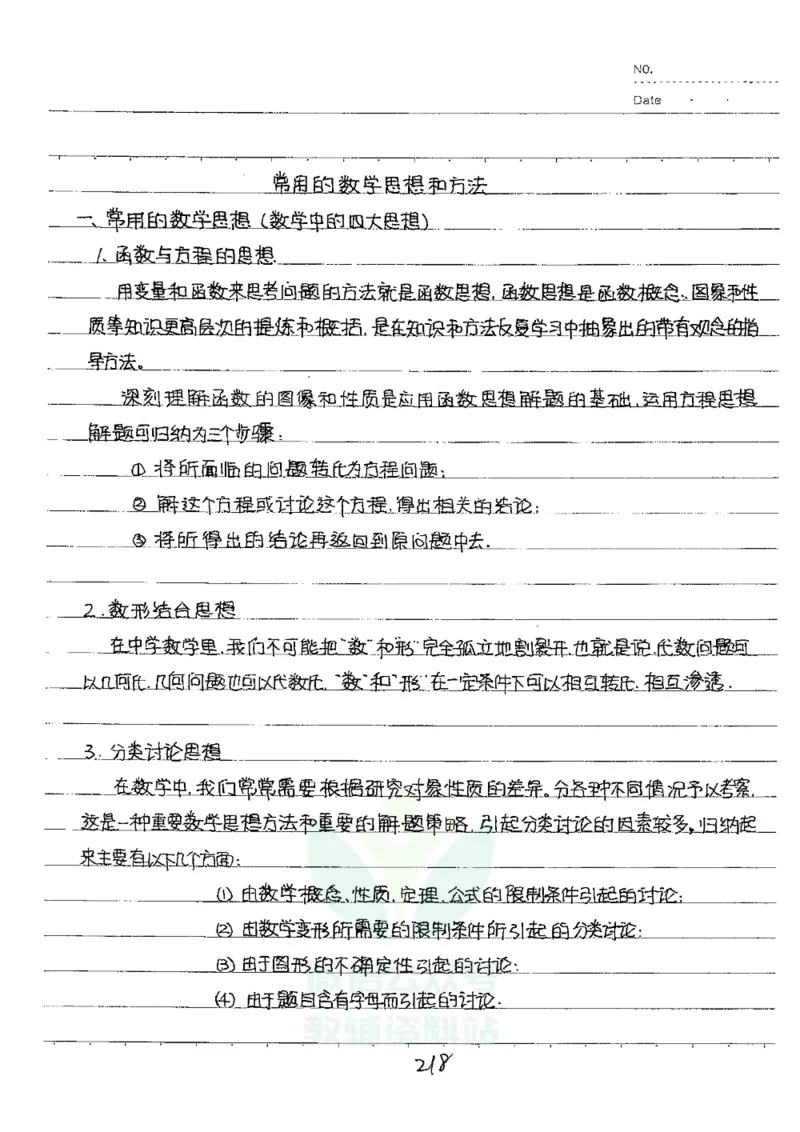 NO.
Date
常用的数学思想和方法
一、常用的数学思想（数学中的四大思想）
1. 函数与方程的思想
用变量和函数来思考问题的方法就是函数思想，函数思想是函数概念、图象和性
质等知识更高层次的提炼和概括，是在知识和方法反复学习中抽象出的带有观念的指
导方法。
深刻理解函数的图像和性质是应用函数思想解题的基础，运用方程思想
解题可归纳为三个步骤：
① 将所面临的问题转化为方程问题；
② 解这个方程或讨论这个方程，得出相关的结论；
③ 将所得出的结论再返回到原问题中去.
2. 数形结合思想
在中学数学里，我们不可能把“数”和“形”完全孤立地割裂开，也就是说，代数问题可
以几何化，几何问题也可以代数化，“数”和“形”在一定条件下可以相互转化、相互渗透.
3. 分类讨论思想
在数学中，我们常常需要根据研究对象性质的差异。分各种不同情况予以考察，
这是一种重要数学思想方法和重要的解题策略，引起分类讨论的因素较多，归纳起
来主要有以下几个方面：
(1) 由数学概念、性质、定理、公式的限制条件引起的讨论；
(2) 由数学变形所需要的限制条件所引起的分类讨论；
(3) 由于图形的不确定性引起的讨论；
(4) 由于题目含有字母而引起的讨论.
微信公众号
教辅资料站
218